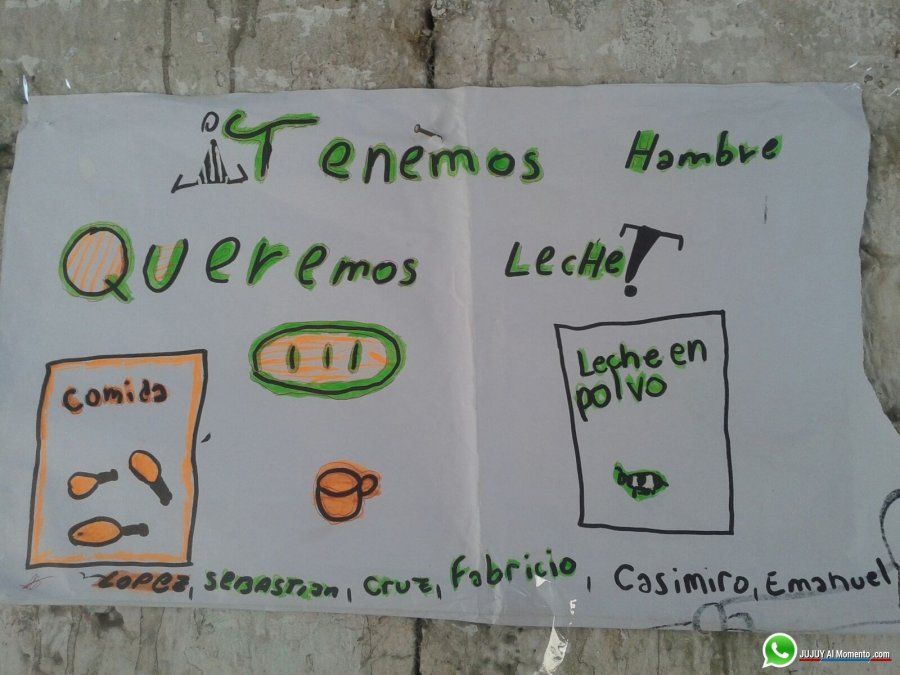 ¡Tenemos Hambre
Queremos Leche!
comida
Leche en
polvo
LOPEZ, SEBASTIAN, CRUZ, Fabricio, Casimiro, Emanuel
JUJUY Al Momento.com